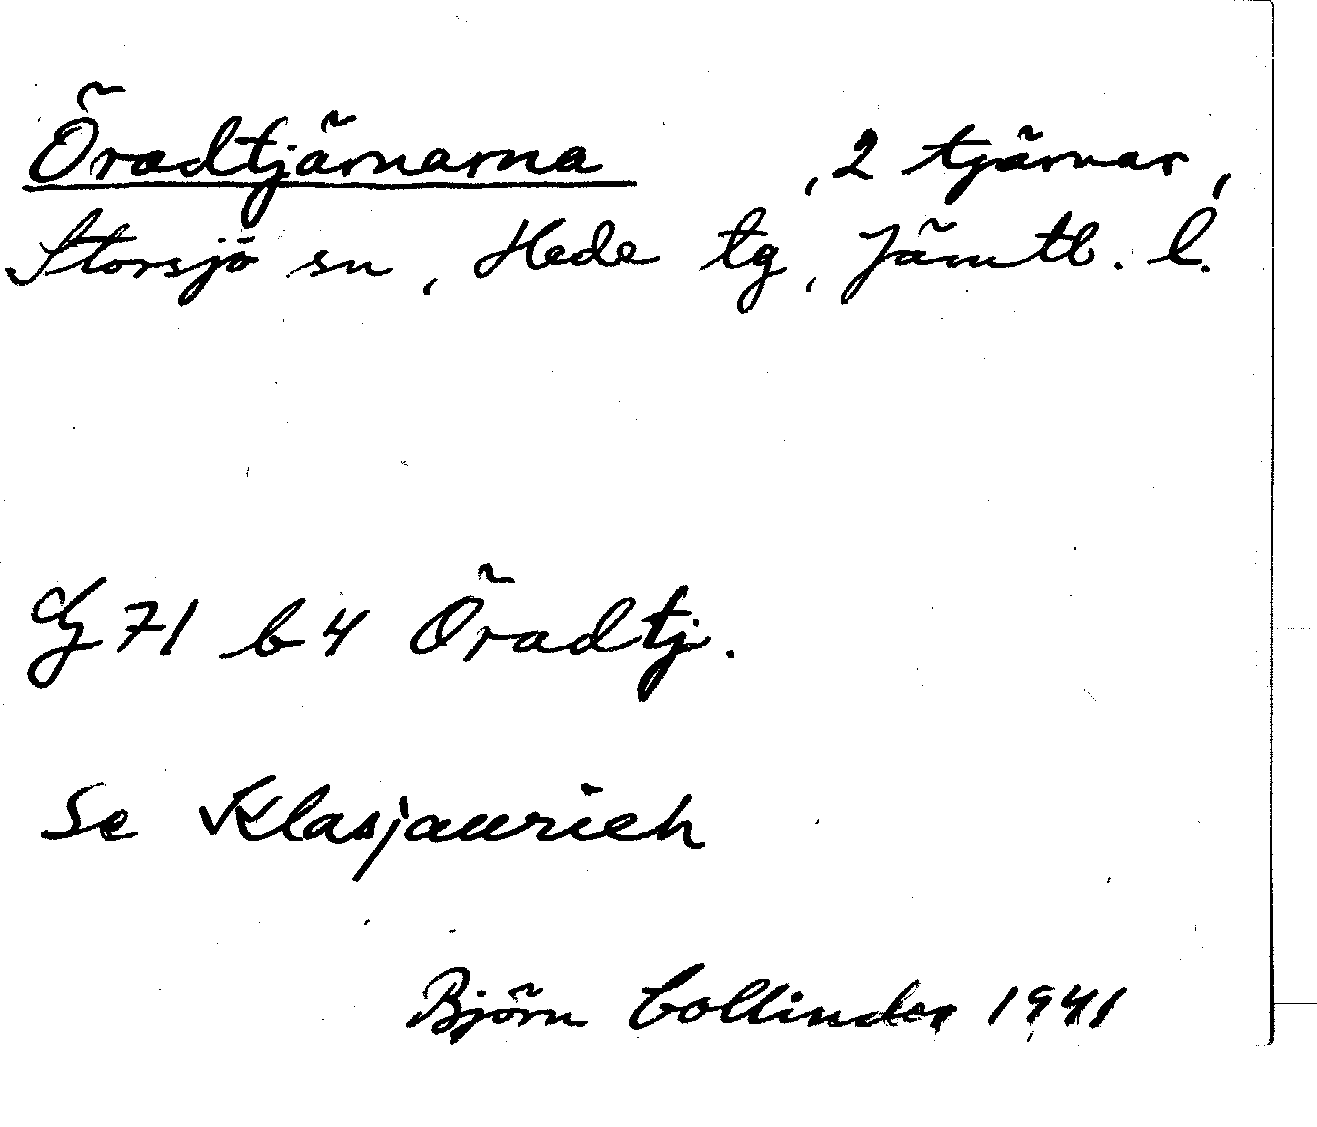 Öradtjärnarna , 2 tjärnar,
Storsjö sn, Hede tg, Jämtl. l.
G 71 b 4 Öradtj.
Se Klasjaurieh
Björn Collinder 1941